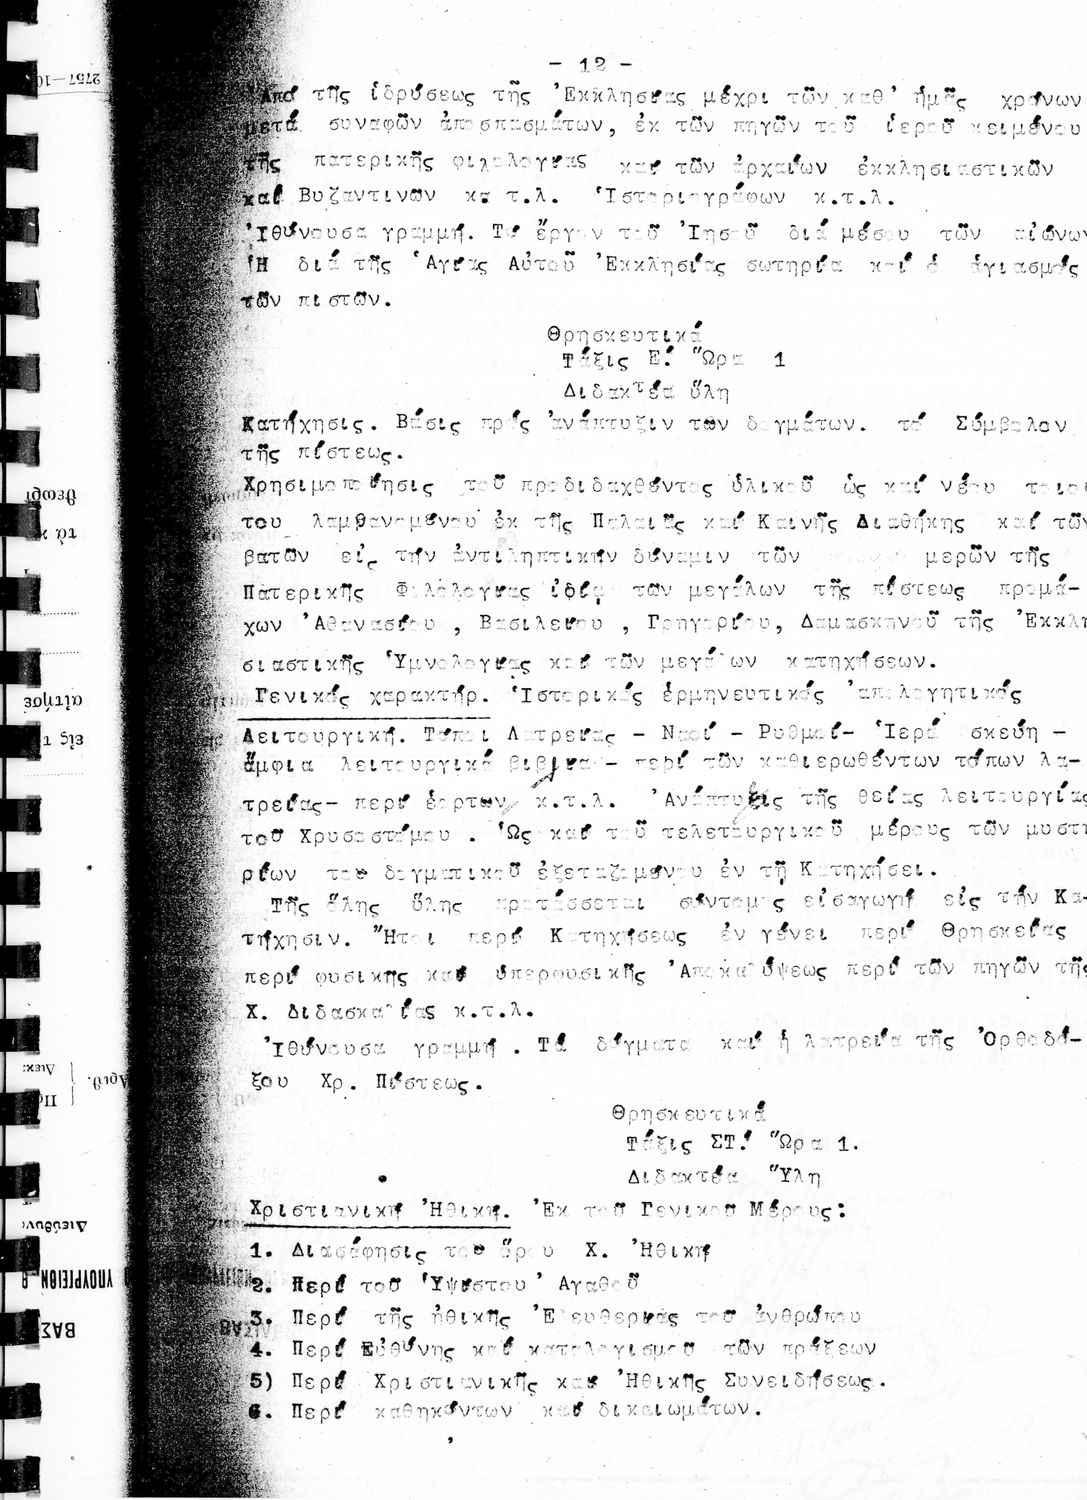 - 12 -
Ἀπό τῆς ἱδρύσεως τῆς Ἐκκλησίας μέχρι τῶν καθ' ἡμᾶς χρόνων
μετά συναφῶν ἀποσπασμάτων, ἐκ τῶν πηγῶν τοῦ ἱεροῦ κειμένου
τῆς πατερικῆς φιλολογίας καί τῶν ἀρχαίων ἐκκλησιαστικῶν
καί Βυζαντινῶν κ. τ.λ. Ἱστοριογράφων κ.τ.λ.
Ἰθύνουσα γραμμή. Τό ἔργον τοῦ Ἰησοῦ διά μέσου τῶν αἰώνων
Ἡ διά τῆς Ἁγίας Αὐτοῦ Ἐκκλησίας σωτηρία καί ὁ ἁγιασμός
τῶν πιστῶν.
Θρησκευτικά
Τάξις Ε! Ὥρα 1
Διδακτέα ὕλη
Κατήχησις. Βάσις πρός ἀνάπτυξιν τῶν δογμάτων. τό Σύμβολον
τῆς πίστεως.
Χρησιμοποίησις τοῦ προδιδαχθέντος ὑλικοῦ ὡς καί νέου τοιού
του λαμβανομένου ἐκ τῆς Παλαιᾶς καί Καινῆς Διαθήκης καί τῶν
βατῶν εἰς τήν ἀντιληπτικήν δύναμιν τῶν μερῶν τῆς
Πατερικῆς Φιλολογίας ἰδίᾳ τῶν μεγάλων τῆς πίστεως προμά-
χων Ἀθανασίου , Βασιλείου , Γρηγορίου, Δαμασκηνοῦ τῆς Ἐκκλη
σιαστικῆς Ὑμνολογίας καί τῶν μεγάλων κατηχήσεων.
Γενικός χαρακτήρ. Ἱστορικός ἑρμηνευτικός ἀπολογητικός
Λειτουργική. Τόποι Λατρείας - Ναοί - Ρυθμοί- Ἱερά σκεύη -
ἄμφια λειτουργικά βιβλία - περί τῶν καθιερωθέντων τόπων λα-
τρείας- περί ἑορτῶν κ.τ.λ. Ἀνάπτυξις τῆς θείας λειτουργίας
τοῦ Χρυσοστόμου . Ὡς καί τοῦ τελετουργικοῦ μέρους τῶν μυστη
ρίων τοῦ δογματικοῦ ἐξεταζομένου ἐν τῇ Κατηχήσει.
Τῆς ὅλης ὕλης προτάσσεται σύντομος εἰσαγωγή εἰς τήν Κα-
τήχησιν. Ἤτοι περί Κατηχήσεως ἐν γένει περί Θρησκείας
περί φυσικῆς καί ὑπερφυσικῆς Ἀποκαλύψεως περί τῶν πηγῶν τῆς
Χ. Διδασκαλίας κ.τ.λ.
Ἰθύνουσα γραμμή . Τά δόγματα καί ἡ λατρεία τῆς Ὀρθοδό-
ξου Χρ. Πίστεως.
Θρησκευτικά
Τάξις ΣΤ! Ὥρα 1.
Διδακτέα Ὕλη
Χριστιανική Ἠθική. Ἐκ τοῦ Γενικοῦ Μέρους:
1. Διασάφησις τοῦ ὅρου Χ. Ἠθική
2. Περί τοῦ Ὑψίστου Ἀγαθοῦ
3. Περί τῆς ἠθικῆς Ἐλευθερίας τοῦ ἀνθρώπου
4. Περί Εὐθύνης καί καταλογισμοῦ τῶν πράξεων
5) Περί Χριστιανικῆς καί Ἠθικῆς Συνειδήσεως.
6. Περί καθηκόντων καί δικαιωμάτων.
2757-10
θεωρ
τά κ
αἰτήσε
εἰς τ
Διεκ.
Ἀριθ.
Διεύθυν
ΥΠΟΥΡΓΕΙΟΝ
ΒΑΣ